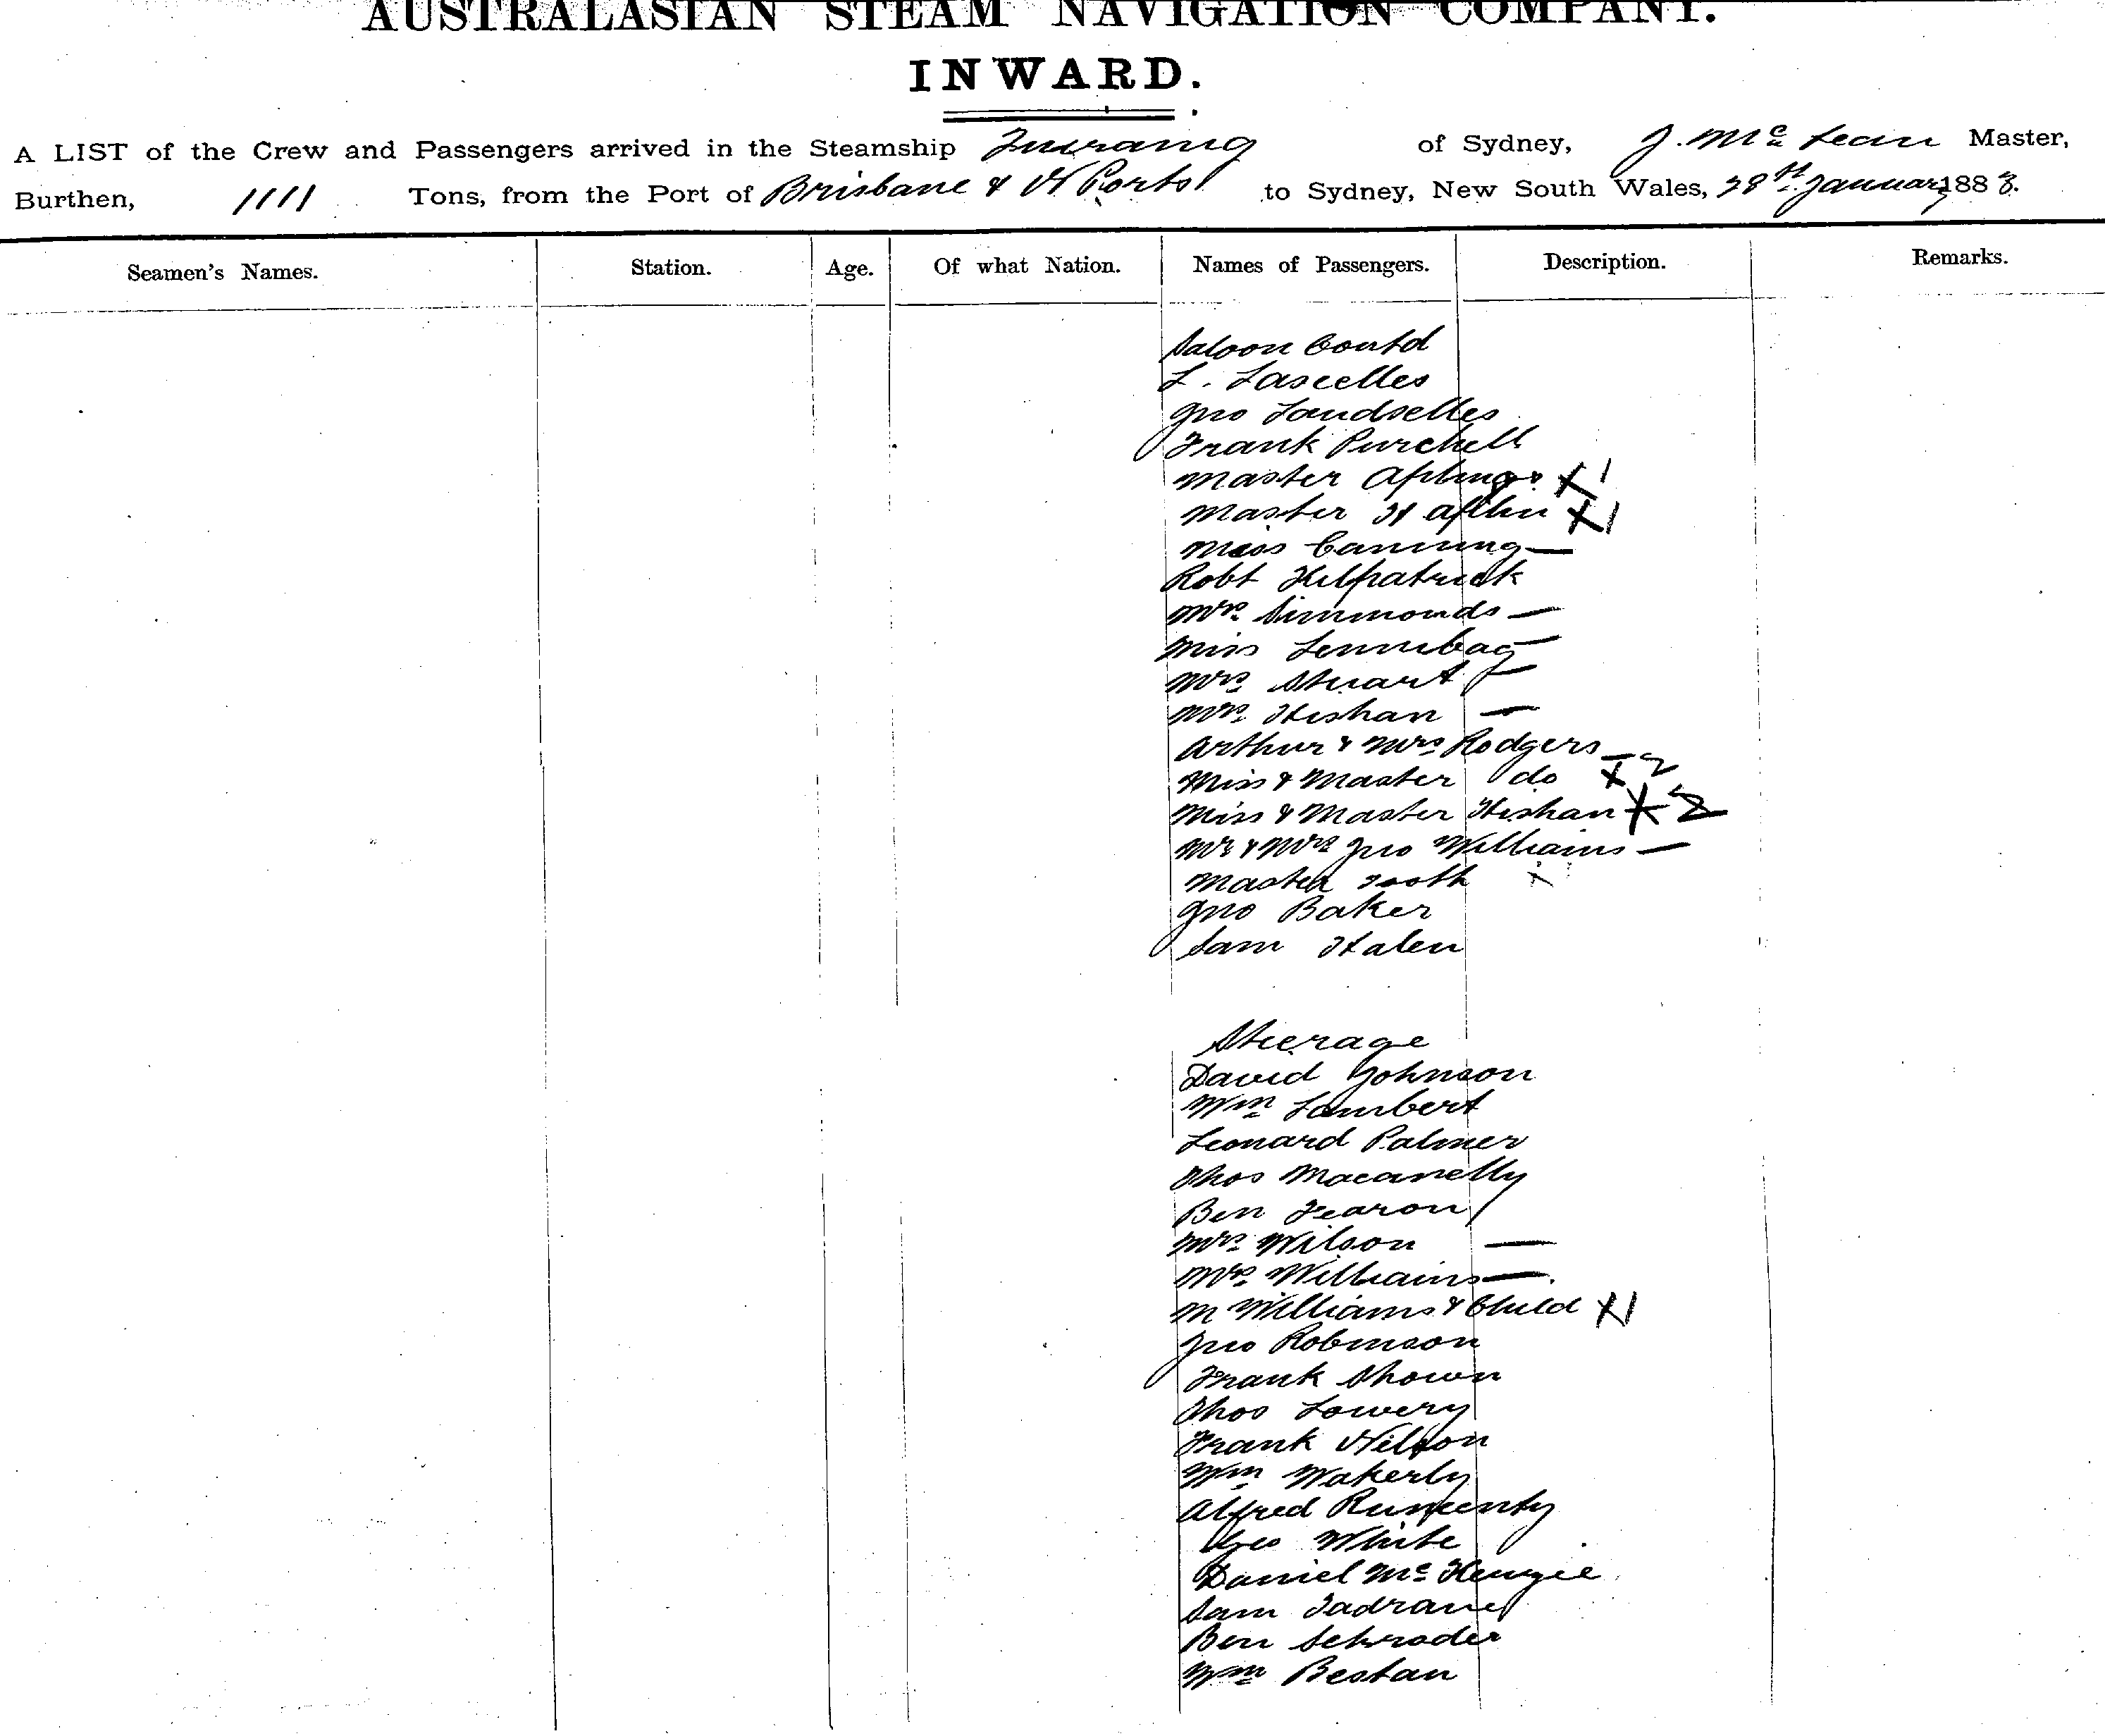 AUSTRALASIAN STEAM NAVIGATION COMPANY.
INWARD.
A LIST of the Crew and Passengers arrived in the Steamship of Sydney, J. McLean Master,
Burthen, 1111 Tons, from the Port of Brisbane & N Ports to Sydney, New South Wales, 28th January 1883.
Seamen's Names. Station. Age. Of what Nation. Names of Passengers. Description. Remarks.
Saloon Contd
L. Lascelles
Jno Landselles
Frank Purchell
Master X 1
Master H X 1
Miss Canning —
Robt Kilpatrick
Mrs. Simmonds —
Miss —
Mrs Stuart —
Mrs. Hishan —
Arthur & Mrs Rodgers — 2
Miss & Master do X
Miss & Master Hishan X 2
Mr & Mrs Jno Williams —
Master Tooth X
Jno Baker
Sam Halen
Steerage
David Johnson
Wm Lambert
Leonard Palmer
Thos Macanelly
Ben Fearon
Mrs Wilson —
Mrs. Williams —
M Williams & Child X 1
Jno Robinson
Frank Shown
Thos Lowery
Frank Nelson
Wm Wakerly
Alfred
Geo White
Daniel McKenzie
Sam
Ben Schroder
Wm Bestan